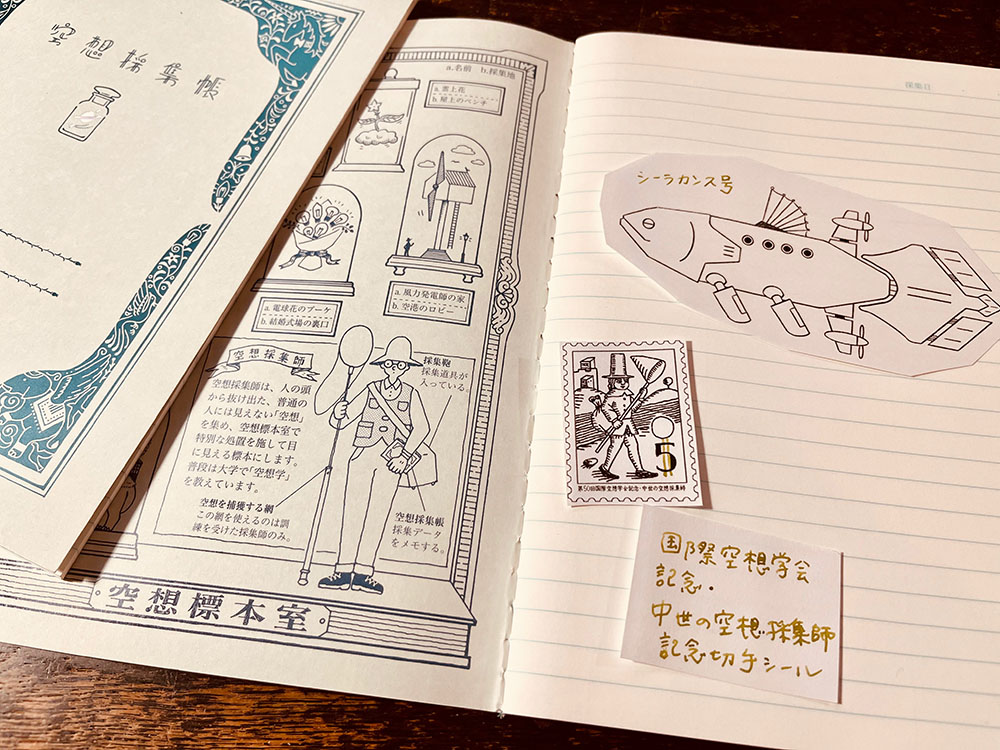 空想採集帳
a.名前 b.採集地
a.雲上花
b.陸上のベンチ
a.電球花のブーケ
b.結婚式場の裏口
a.風力発電師の家
b.空港のロビー
空想採集師
空想採集師は、人の頭
から抜け出た、普通の
人には見えない「空想」
を集め、空想標本室で
特別な処置を施して目
に見える標本にします。
普段は大学で「空想学」
を教えています。
空想を捕獲する網
この網を使えるのは訓
練を受けた採集師のみ。
採集鞄
採集道具が
入っている。
空想採集帳
採集データ
をメモする。
空想標本室
採集日
シーラカンス号
5
第50回国際空想学会記念・中世の空想採集師
国際空想学会
記念・
中世の空想採集師
記念切手シール